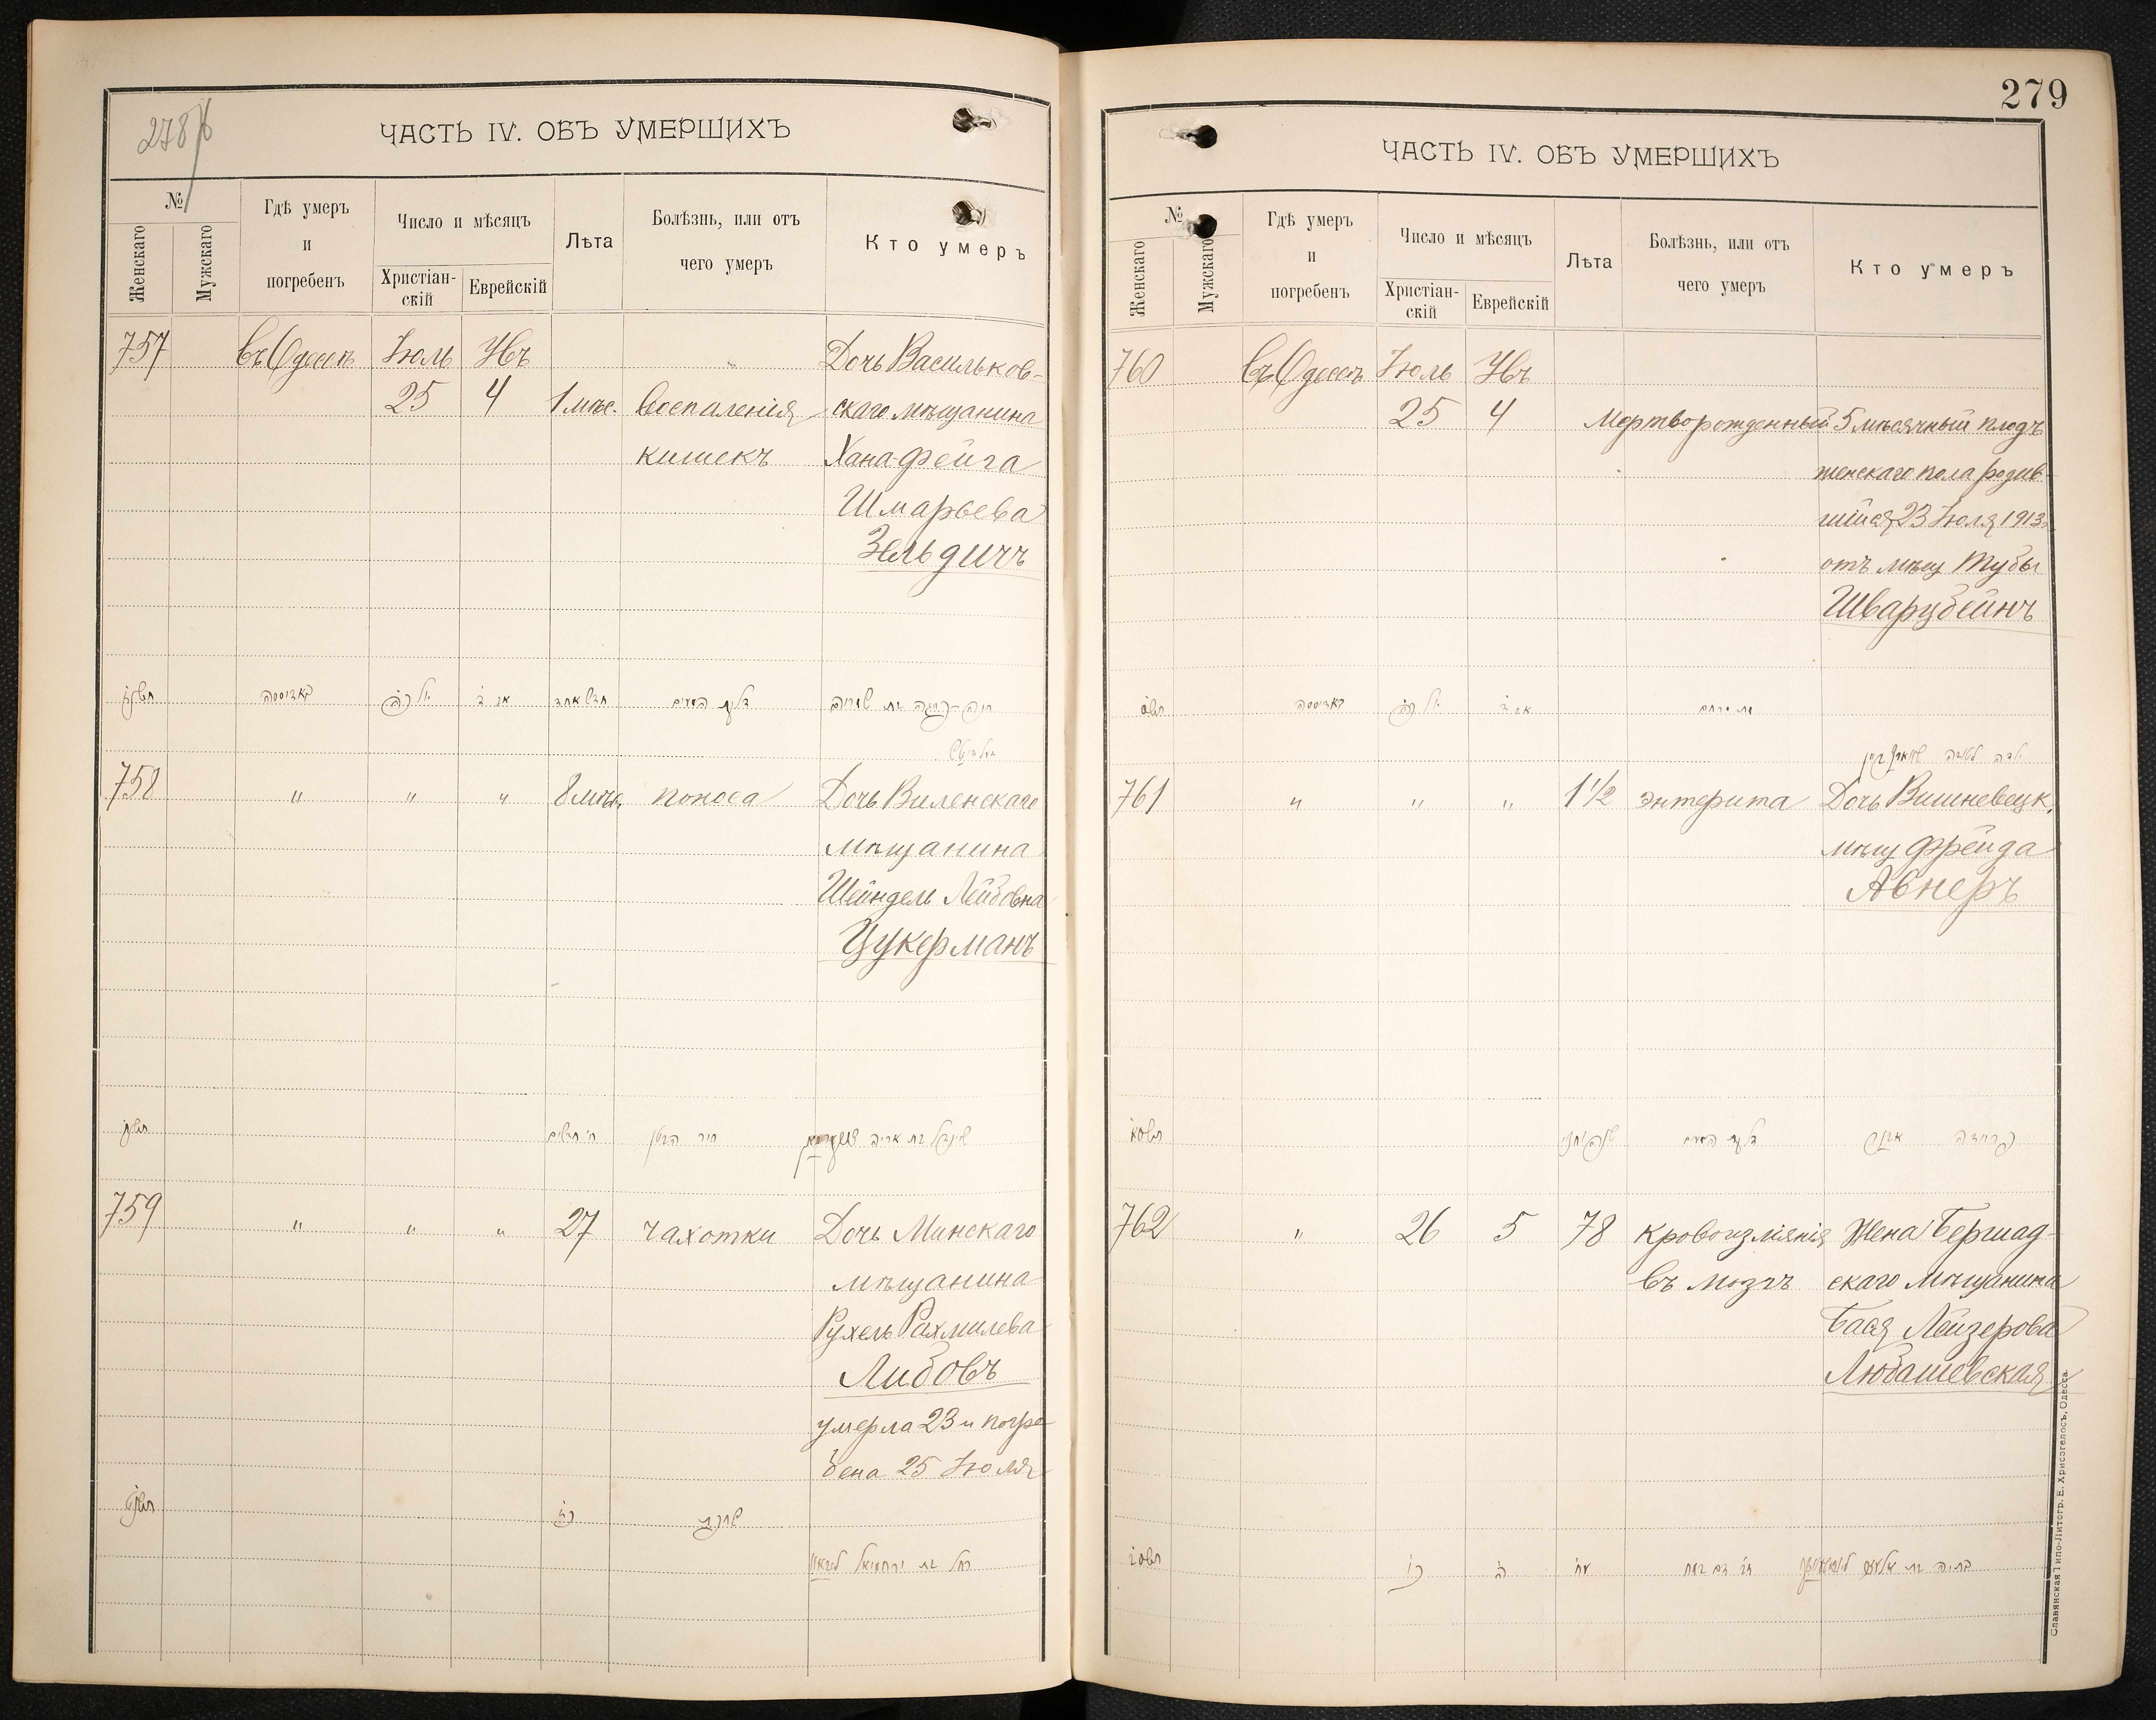 278
ЧАСТЬ IV. ОБЪ УМЕРШИХЪ
№
Женскаго
Мужскаго
Гдѣ умеръ
и
погребенъ
Число и мѣсяцъ
Христіан-
скій
Еврейскій
Лѣта
Болѣзнь, или отъ
чего умеръ
Кто умеръ
757 Въ Одессѣ Іюль Увъ Дочь Васильков-
25 4 1 мѣс. воспаленія скаго мѣщанина
кишекъ Хана-Фейга
Шмарьева
Зельдичъ
באדיסטה
דלקת המעים
758 " " " 8 мѣс. поноса Дочь Виленскаго
мѣщанина
Шейндель Лейбовна
Цукерманъ
שינדל בת אריה צוקערמאן
759 " " " 27 чахотки Дочь Минскаго
мѣщанина
Рухель Рахмилева
Либовъ
умерла 23 и погре-
бена 25 Іюля
כז שחפת
רחל בת ירחמיאל
279
ЧАСТЬ IV. ОБЪ УМЕРШИХЪ
№
Женскаго
Мужскаго
Гдѣ умеръ
и
погребенъ
Число и мѣсяцъ
Христіан-
скій
Еврейскій
Лѣта
Болѣзнь, или отъ
чего умеръ
Кто умеръ
760 Въ Одессѣ Іюль Увъ
25 4 Мертворожденный 5 мѣсячный плодъ
женскаго пола родив-
шійся 23 Іюля 1913 г.
отъ мѣщ Тубы
Шварцбейнъ
761 " " " 1½ энтерита Дочь Вишневецк.
мѣщ Фрейда
Авнеръ
דלקת המעים
762 " 26 5 78 кровоизліянія Жена Бершад-
въ мозгъ скаго мѣщанина
Бася Лейзерова
Любашевская
Славянская Типо-Литогр. Е. Хрисогелосъ, Одесса